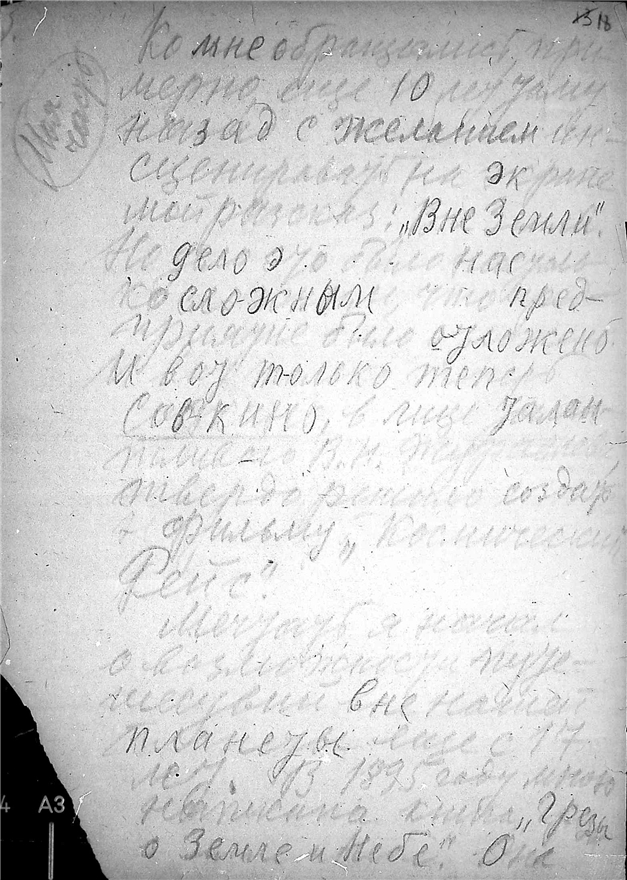 18
Моя
часть
Ко мне обращались, при-
мерно, еще 10 лет тому
назад с желанием ин-
сценировать на экране
мой рассказ: „Вне Земли".
Но дело это было настоль-
ко сложным что пред-
приятие было отложено.
И вот только теперь
Совкино, в лице талан-
тливого В. Н. Журавлева,
твердо решило создать
фильму „Космический
Рейс".
Мечтать я начал
о возможности путе-
шествий вне нашей
планеты еще с 17
лет. В 1895 году мною
написана книга „Грезы
о Земле и Небе". Она
4 A3